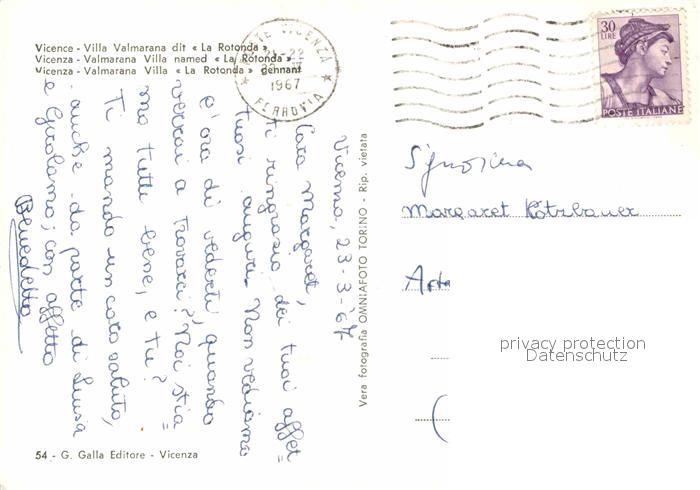 Vicence - Villa Valmarana dit « La Rotonda »
Vicenza - Valmarana Villa named « La Rotonda »
Vicenza - Valmarana Villa « La Rotonda » gennant
VICENZA
21-22
1967
FERROVIA
30
LIRE
POSTE ITALIANE
Vicenza, 23-3-'67
Cara Margaret,
ti ringrazio dei tuoi affet
tuosi auguri. Non vediamo
l'ora di vederti, quando
verrai a trovarci? Noi stia=
mo tutti bene, e tu?
Ti mando un caro saluto,
anche da parte di Luisa
e Girolamo; con affetto
Benedetta
Vera fotografia OMNIAFOTO TORINO - Rip. vietata
Signorina
Margaret Kötzbauer
privacy protection
Datenschutz
54 - G. Galla Editore - Vicenza